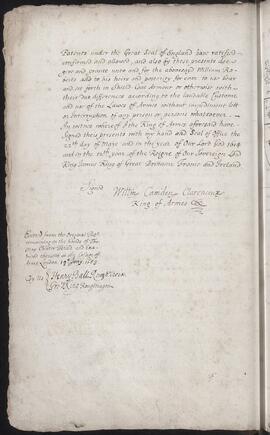 Patents under the Great Seal of England have ratified
confirmed and allowed, and also by these presents doe
give and graunt unto and for the aboversaid William Ro-
berts and to his heirs and posterity for ever to use bear
and set forth in Shield Coat Armour or otherwise with
their due differences according to the laudable Custome
and use of the Laws of Armes without impediment lett
or Interruption of any person or persons whatsoever.
In witnes whereof I the King of Armes aforesaid have
Signed these presents with my hand and Seal of Office the
22th day of Maie and in the year of Our Lord God 1614
and in the 12th year of the Reigne of Our Sovereign Lord
King James King of Great Brittain France and Ireland
Signed
Willm Camden Clarenceux
King of Armes
from the Original
remaining in the hands of
Chester Herald and Exa-
mined therewith in the Colledge of
Armes London
By Us Henry Ball
Geo: King Rougdragon